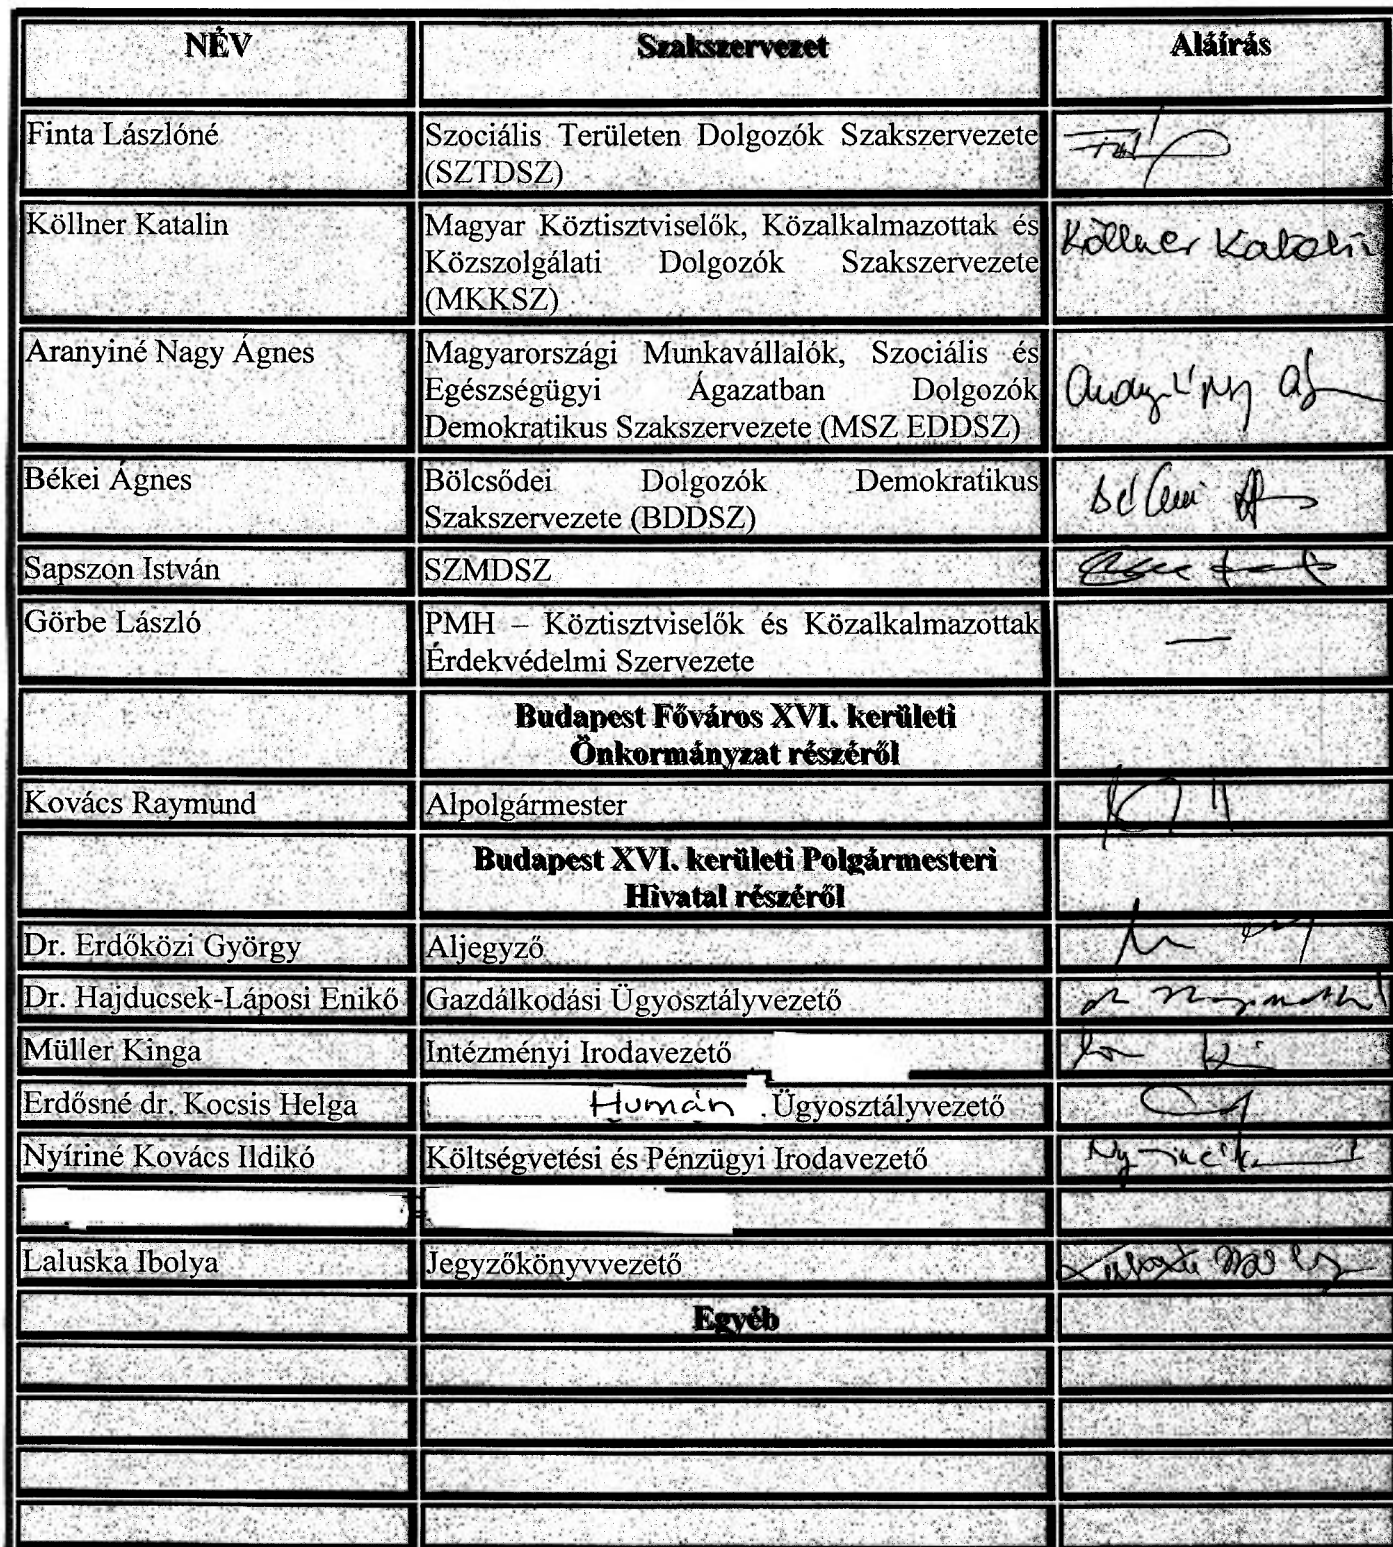 NÉV Szakszervezet Aláírás
Finta Lászlóné Szociális Területen Dolgozók Szakszervezete
(SZTDSZ)
Köllner Katalin Magyar Köztisztviselők, Közalkalmazottak és Köllner Katalin
Közszolgálati Dolgozók Szakszervezete
(MKKSZ)
Aranyiné Nagy Ágnes Magyarországi Munkavállalók, Szociális és
Egészségügyi Ágazatban Dolgozók
Demokratikus Szakszervezete (MSZ EDDSZ)
Békei Ágnes Bölcsődei Dolgozók Demokratikus
Szakszervezete (BDDSZ)
Sapszon István SZMDSZ
Görbe László PMH – Köztisztviselők és Közalkalmazottak —
Érdekvédelmi Szervezete
Budapest Főváros XVI. kerületi
Önkormányzat részéről
Kovács Raymund Alpolgármester
Budapest XVI. kerületi Polgármesteri
Hivatal részéről
Dr. Erdőközi György Aljegyző
Dr. Hajducsek-Láposi Enikő Gazdálkodási Ügyosztályvezető
Müller Kinga Intézményi Irodavezető
Erdősné dr. Kocsis Helga Humán Ügyosztályvezető
Nyíriné Kovács Ildikó Költségvetési és Pénzügyi Irodavezető
Laluska Ibolya Jegyzőkönyvvezető
Egyéb